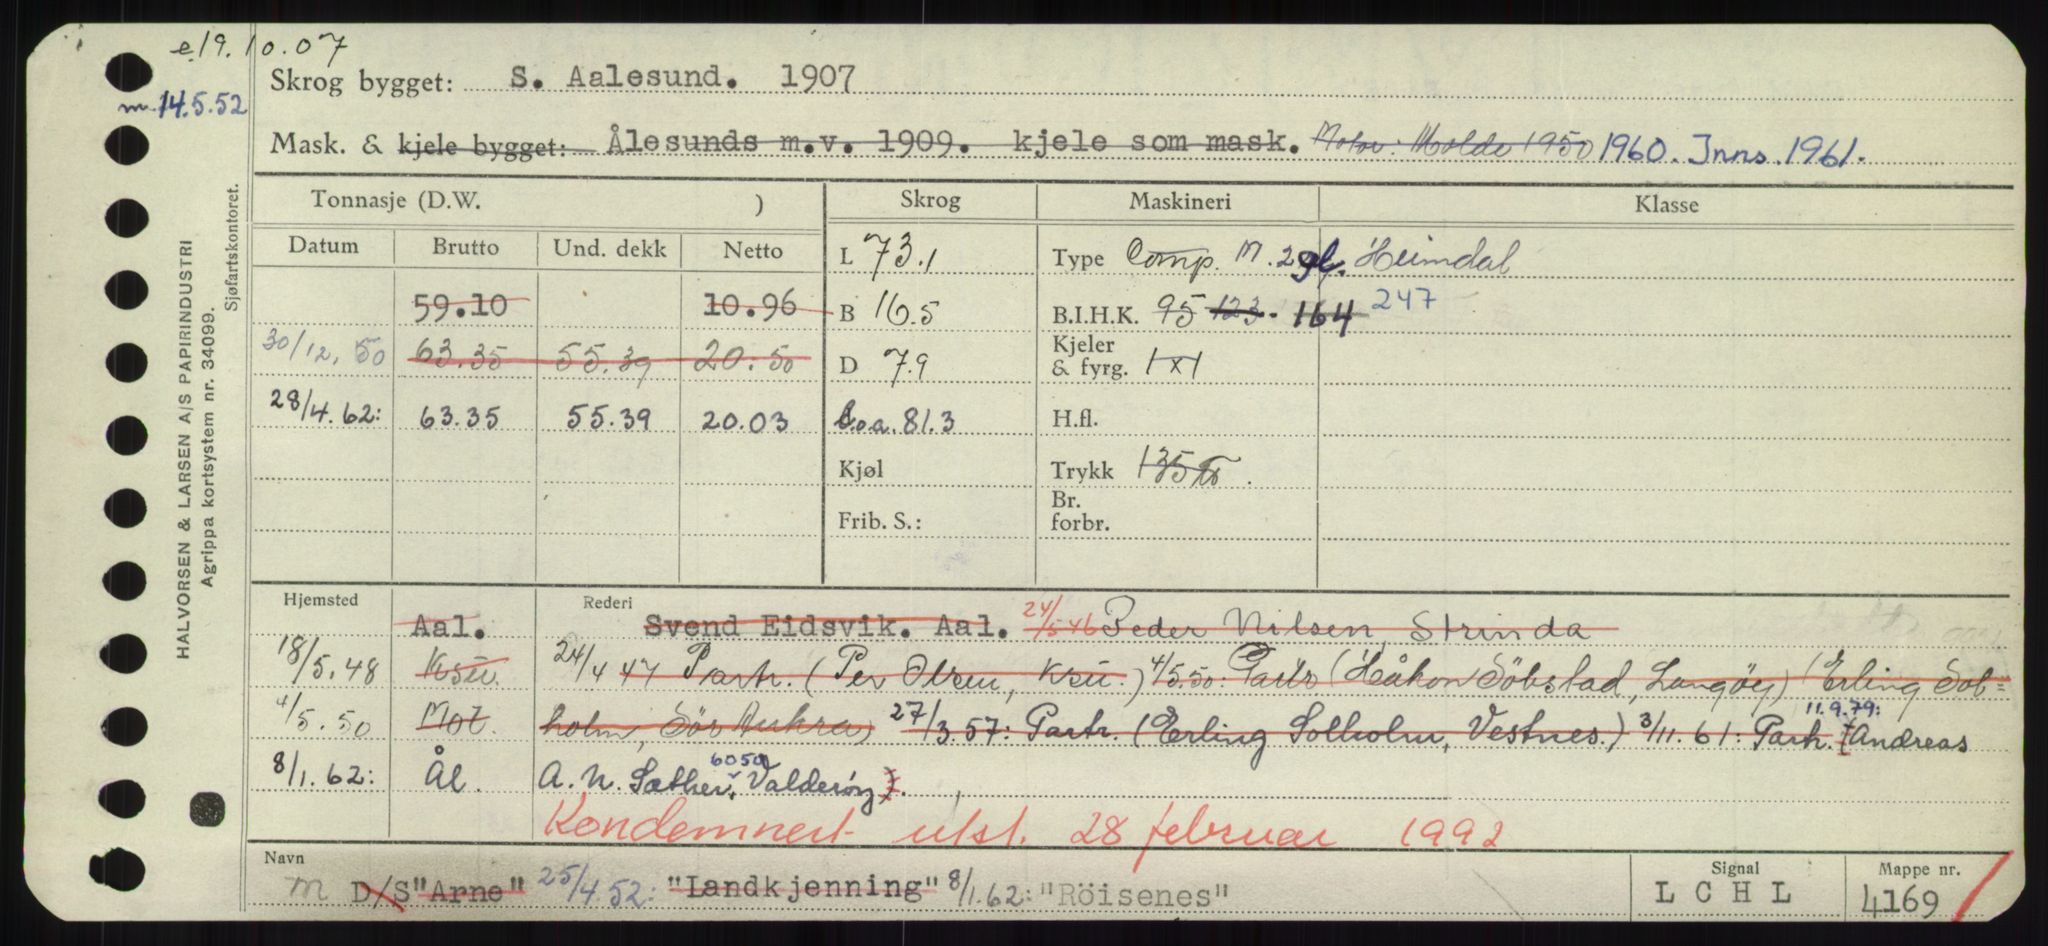 e 19.10.07
Skrog bygget: S. Aalesund. 1907
m. 14.5.52
Mask. & kjele bygget: Ålesunds m.v. 1909. kjele som mask. Motor: Molde 1950 1960. Inns. 1961.
HALVORSEN & LARSEN A/S PAPIRINDUSTRI
Agrippa kortsystem nr. 34099.
Sjøfartskontoret.
Tonnasje (D.W. ) Skrog Maskineri Klasse
Datum Brutto Und. dekk Netto
L 73.1 Type Comp. M. 2 syl. Heimdal
59.10 10.96 B 16.5 B.I.H.K. 95 123. 164 247
30/12.50 63.35 55.39 20.50 D 7.9 Kjeler & fyrg. 1x1
28/4.62: 63.35 55.39 20.03 L.o.a. 81.3 H.fl.
Kjøl Trykk 135
Frib. S.: Br. forbr.
Hjemsted Rederi
Aal. Svend Eidsvik. Aal. 24/5 46 Peder Nilsen, Strinda
18/5.48 Ksu. 24/4 47 Partr. (Per Olsen, Ksu.) 4/5.50: Partr (Håkon Söbstad, Langöy) (Erling Sol=
4/5.50 Mot. holm, Sör Aukra) 27/3.57: Partr. (Erling Solholm, Vestnes.) 3/11.61: Partr. 11.9.79: (Andreas
8/1.62: Ål. A. N. Sæther, 6050 Valderöy).
Kondemnert utst. 28 februar 1992
Navn Signal Mappe nr.
M D/S "Arne" 25/4.52: "Landkjenning" 8/1.62: "Röisenes" L C H L 4169